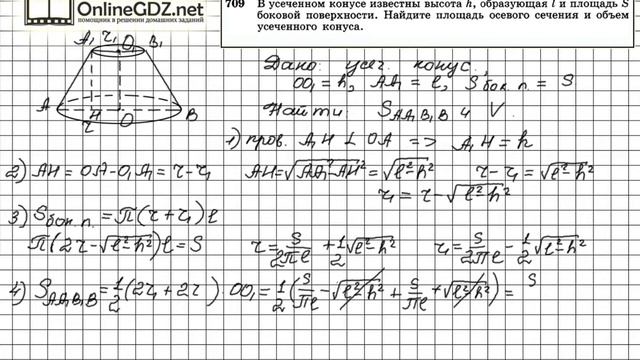 OnlineGDZ.net
помощник в решении домашних заданий
709 В усеченном конусе известны высота h, образующая l и площадь S
боковой поверхности. Найдите площадь осевого сечения и объем
усеченного конуса.
A₁ r₁ O₁ B₁
A H O B
r
Дано: усеч. конус,
OO₁ = h, AA₁ = l, Sбок.п. = S
Найти: SAA₁B₁B и V.
1) пров. A₁H ⊥ OA => A₁H = h
2) AH = OA - O₁A₁ = r - r₁ AH = √AA₁² - A₁H² = √l² - h² r - r₁ = √l² - h²
r₁ = r - √l² - h²
3) Sбок.п. = П(r + r₁)l
П(2r - √l² - h²)l = S r = S/2Пl + 1/2 √l² - h² r₁ = S/2Пl - 1/2 √l² - h²
4) SAA₁B₁B = 1/2 (2r₁ + 2r) · OO₁ = 1/2 (S/Пl - √l² - h² + S/Пl + √l² - h²) = S